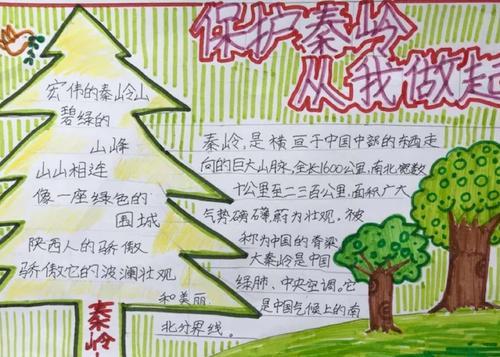 保护秦岭
从我做起
宏伟的秦岭山
碧绿的
山峰
山山相连
像一座绿色的
围城
陕西人的骄傲
骄傲它的波澜壮观
和美丽.
秦岭
秦岭,是横亘于中国中部的东西走
向的巨大山脉,全长1600公里,南北宽数
十公里至二三百公里,面积广大
气势磅礴蔚为壮观。被
称为中国的脊梁
大秦岭是中国
绿肺、中央空调。它
是中国气候上的南
北分界线。